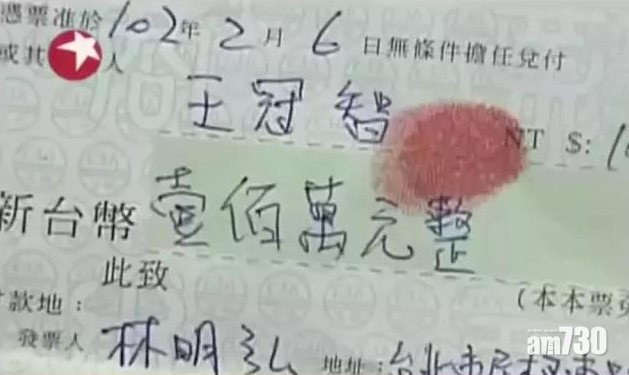 憑票准於102年2月6日無條件擔任兌付
或其 人
王冠智
NT $:
新台幣壹佰萬元整
此致
款地：
(本本票
發票人 林明弘 地址：台北市民
am730